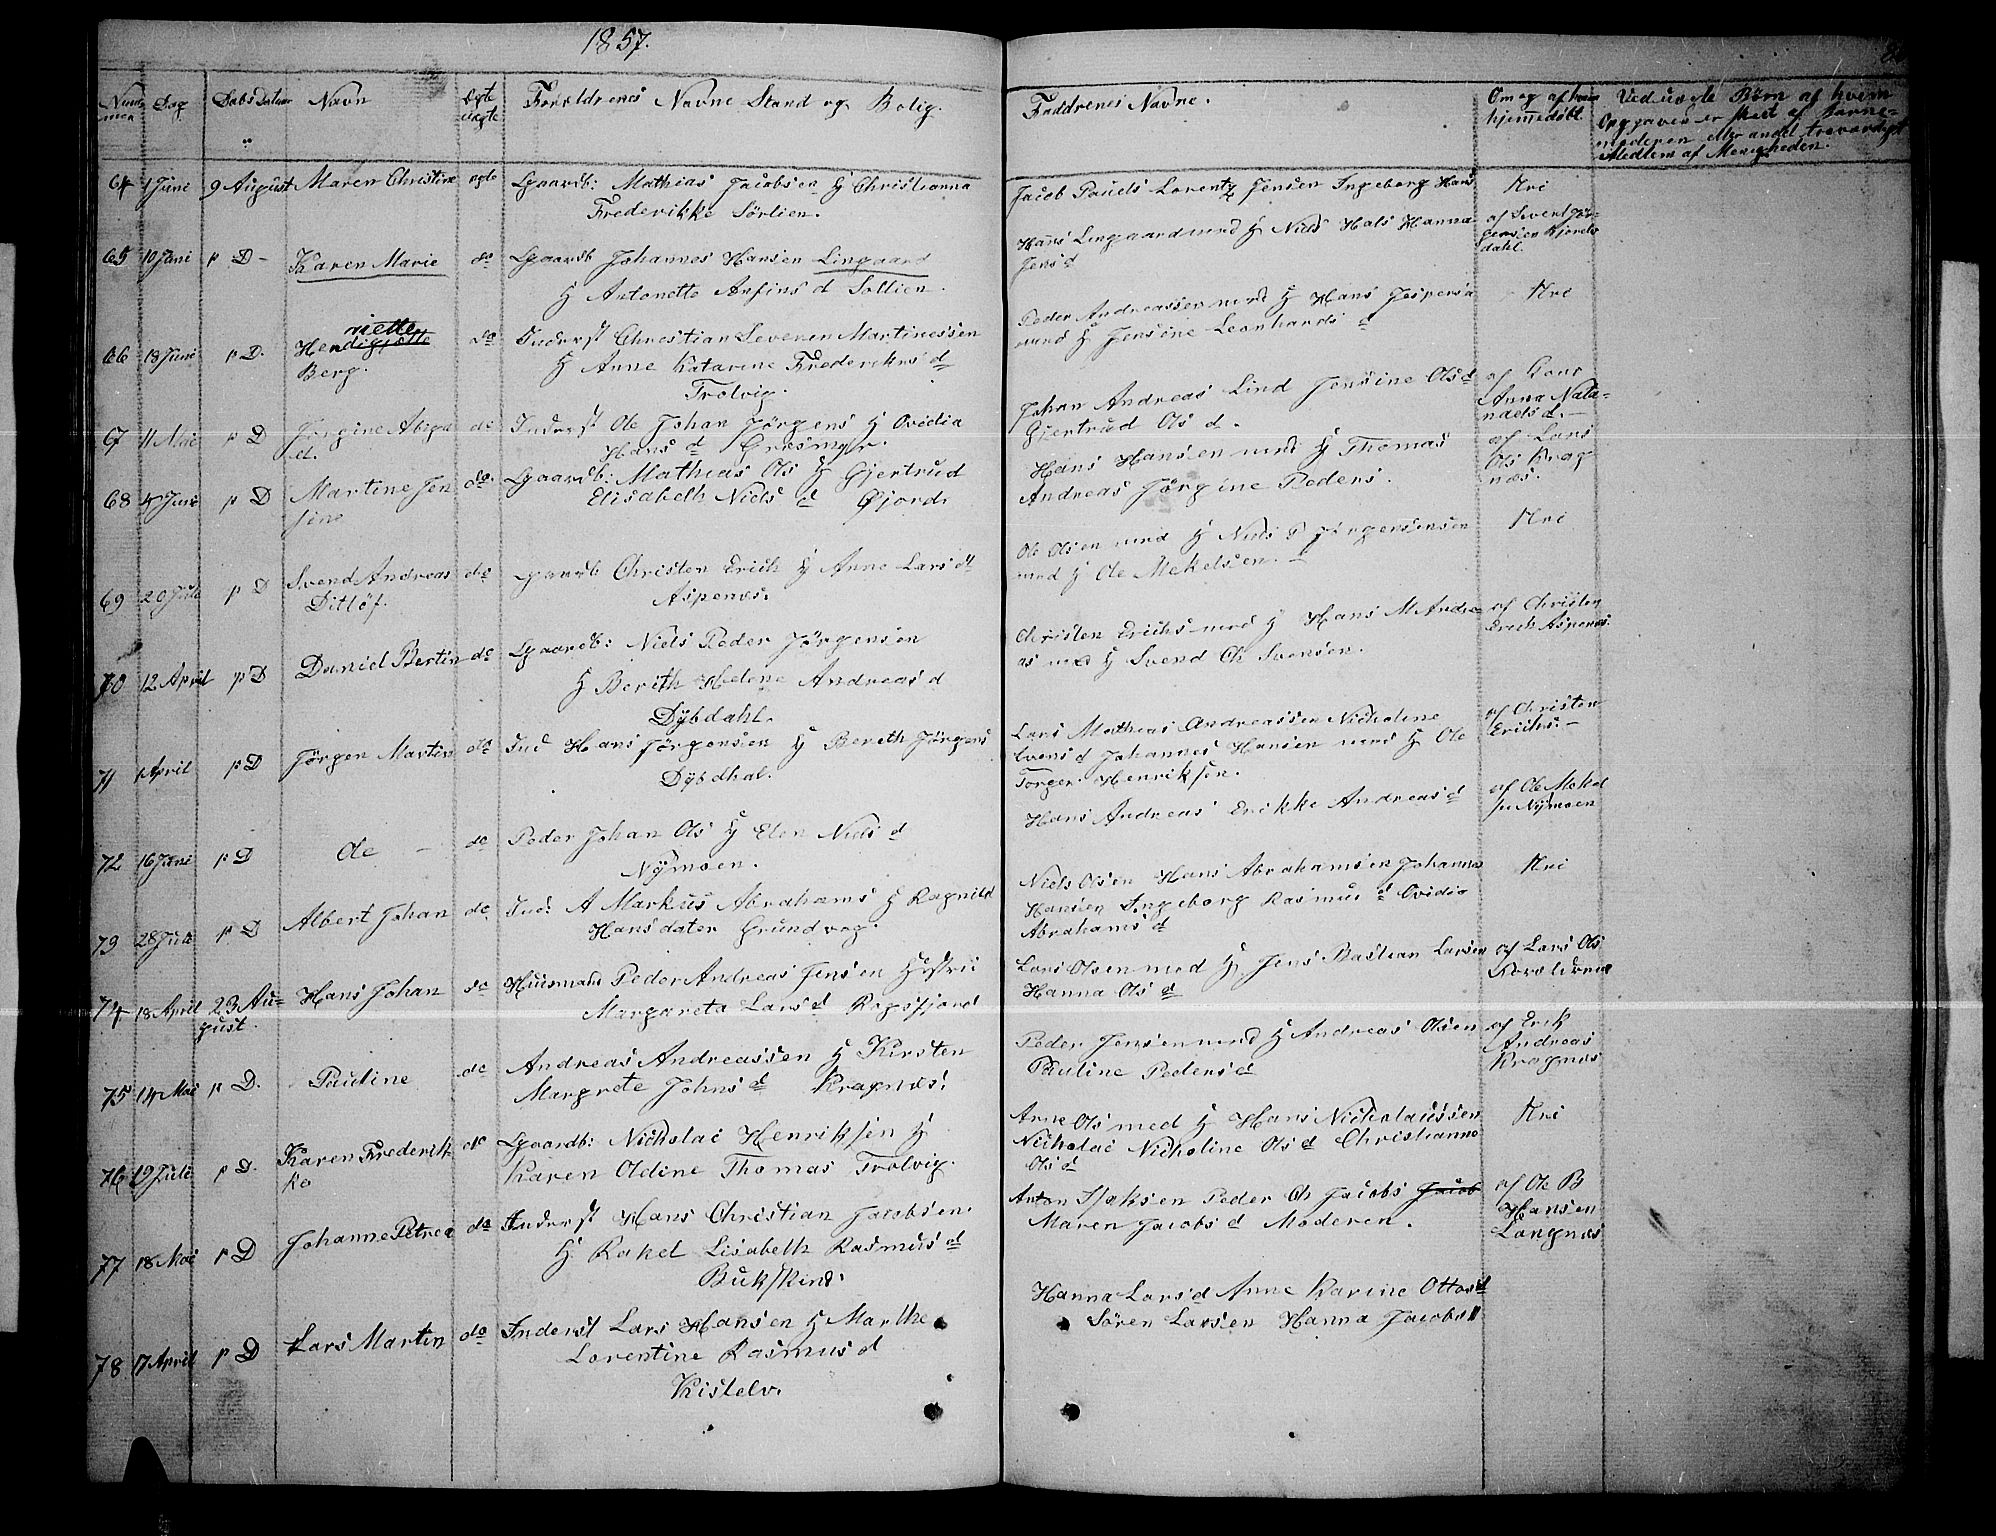 1857.
Dag
Navn
Forældrenes Navne Stand og Bolig.
Faddrenes Navne.
Om og af hvem
hjemmedøbt.
Ved uægte Børn af hvem
Opgaven er skeet af Barne-
moderen eller andet troværdigt
Medlem af Menigheden.
64 1 Juni 9 August Maren Christine ægte Lgaardb: Mathias Jacobsen H Christianna
Frederikke Sörlien.
Jacob Pauels Lorentz Jensen Ingeborg Hans
Nei
65 10 Juni p D - Karen Marie do Lgaardb Johannes Hansen Lingaard
H Antonette Anfins d Sollien.
Hans Lingaard med H Niels Hals Hanna
Jens d
dahl.
66 18 Juni p D. Hen riette
Berg.
do Inderst Christian Severen Martinessen
H Anne Katarine Frederiks d
Trolvig.
Peder Andreassen med H Hans Jespersa
med H Jensine Leonhards d
Nei
67 11 Mai p D Jørgine Abiga
el.
do Inderst Ole Johan Jörgens H Ovidia
Hans d Græsmyr.
Johan Andreas Lind Jensine Ols d
Gjertrud Ols d.
Anna Nata-
naels d. -
68 4 Juni p D Martine Jen
sine
do. Lgaardb: Mathias Ols H Gjertrud
Elisabeth Niels d Gjord.
Hans Hansen med H Thomas
Andreas Jörgine Peders.
af Lars
Ols Krag
næs.
69 20 Juli p D Svend Andreas
Ditlöf.
do Lgaardb Christen Erich H Anne Lars d
Aspenæs.
Ole Olsen med H Niels P Jørgensensen
med H Ole Mekelsen. -
Nei
70 12 April p D Daniel Bertin do Lgaardb: Niels Peder Jörgensen
H Berith Helene Andreas d
Dÿbdahl.
Christen Erichs med H Hans M Andre
as med H Svend Ch Svensen.
af Christen
Erich Aspenæs
71 1 April p D Jörgen Martin do Ind Hans Jørgensen H Berith Jörgens
Dÿbdhal.
Lars Mathias Andreassen Nicholine
Evens d Johannes Hansen med H Ole
Torger Henriksen.
af Christen
Erichs. -
72 16 Juni p D do - do Peder Johan Ols H Elen Niels d
Nÿmoen.
Hans Andreas Erikke Andreas d
af Ole Mekel
Nÿmoen
73 28 Juli p D Albert Johan do Ind: A Markus Abrahams H Ragnild
Hansdater Grundvag.
Niels Olsen Hans Abrahamsen Johanna
Hansen Ingeborg Rasmus d Ovidia
Abrahams d
Nei
74 18 April 23 Au-
gust.
Hans Johan do Huusmand Peder Andreas Jensen Hustrü
Margareta Lars d Rogsfjord
Lars Olsen med H Jens Bastian Larsen
Hanna Ols d
af Lars Ols
75 14 Mai p D. Pauline do Andreas Andreassen H Kirsten
Margrete Johns d Kragnæs.
Peder Jensen med H Andreas Olsen
Pauline Peders d
af Erik
Andreas
Kragnæs
76 19 Juli p D. Karen Frederik
ke
do Lgaardb: Nicholai Henriksen H
Karen Oldine Thomas Trolvig.
Arne Ols med H Hans Nicholaussen
Nicholai Nicholine Ols d Christianne
Ols d
Nei
77 18 Mai p D Johanne Petrea do Inderst Hans Christian Jacobsen
H Rakel Lisabeth Rasmus d
Bukskind.
Anton Isaksen Peder Ch Jacobs Jacob
Maren Jacobs d Moderen.
af Ole B
Hansen
Langnæs
78 17 April p D Lars Martin do Inderst Lars Hansen H Marthe
Lorentine Rasmus d
Kistelv.
Hanna Lars d Anne Karine Ottos d
Sören Larsen Hanna Jacobs d